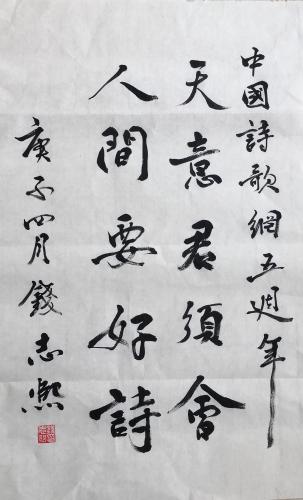 中國詩歌網五週年
天意君須會
人間要好詩
庚子四月錢志熙